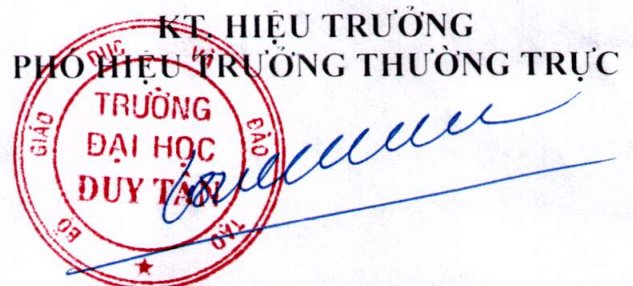 KT. HIỆU TRƯỞNG
PHÓ HIỆU TRƯỞNG THƯỜNG TRỰC
BỘ GIÁO DỤC VÀ ĐÀO TẠO
TRƯỜNG
ĐẠI HỌC
DUY TÂN